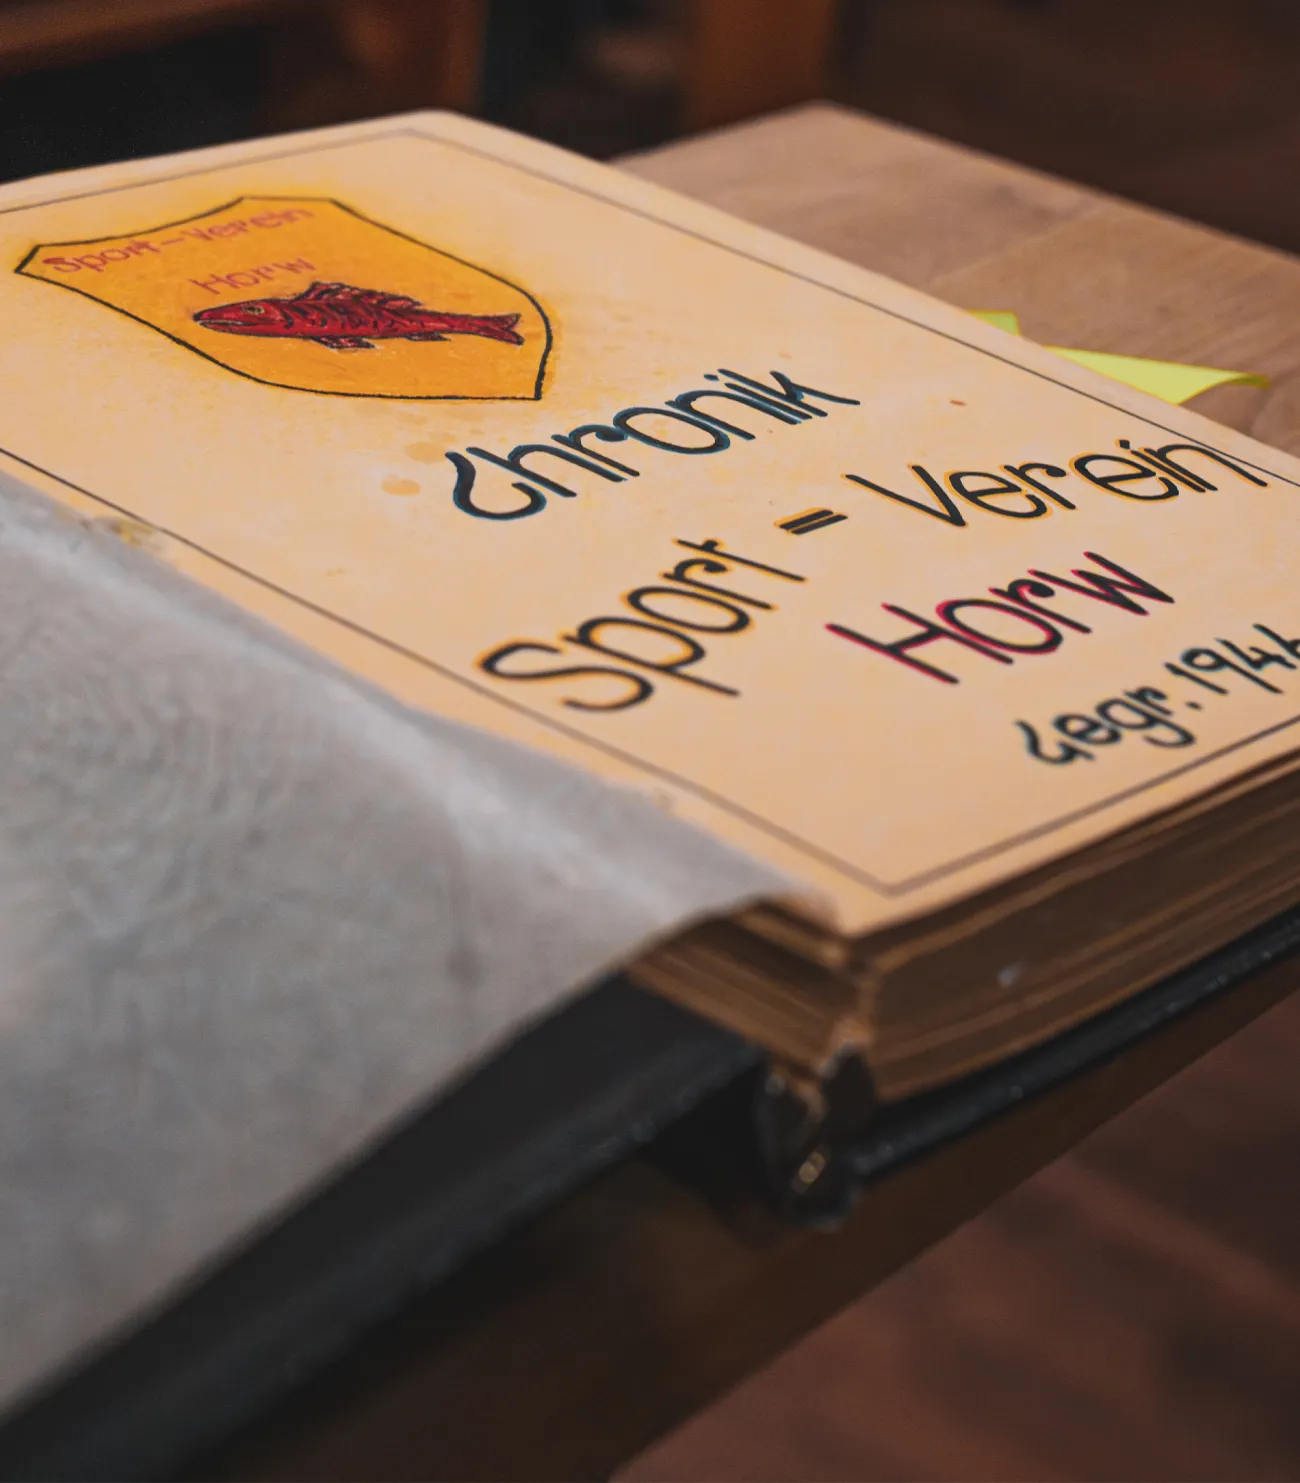 Sport-Verein
Horw
Chronik
Sport = Verein
Horw
Gegr. 1946